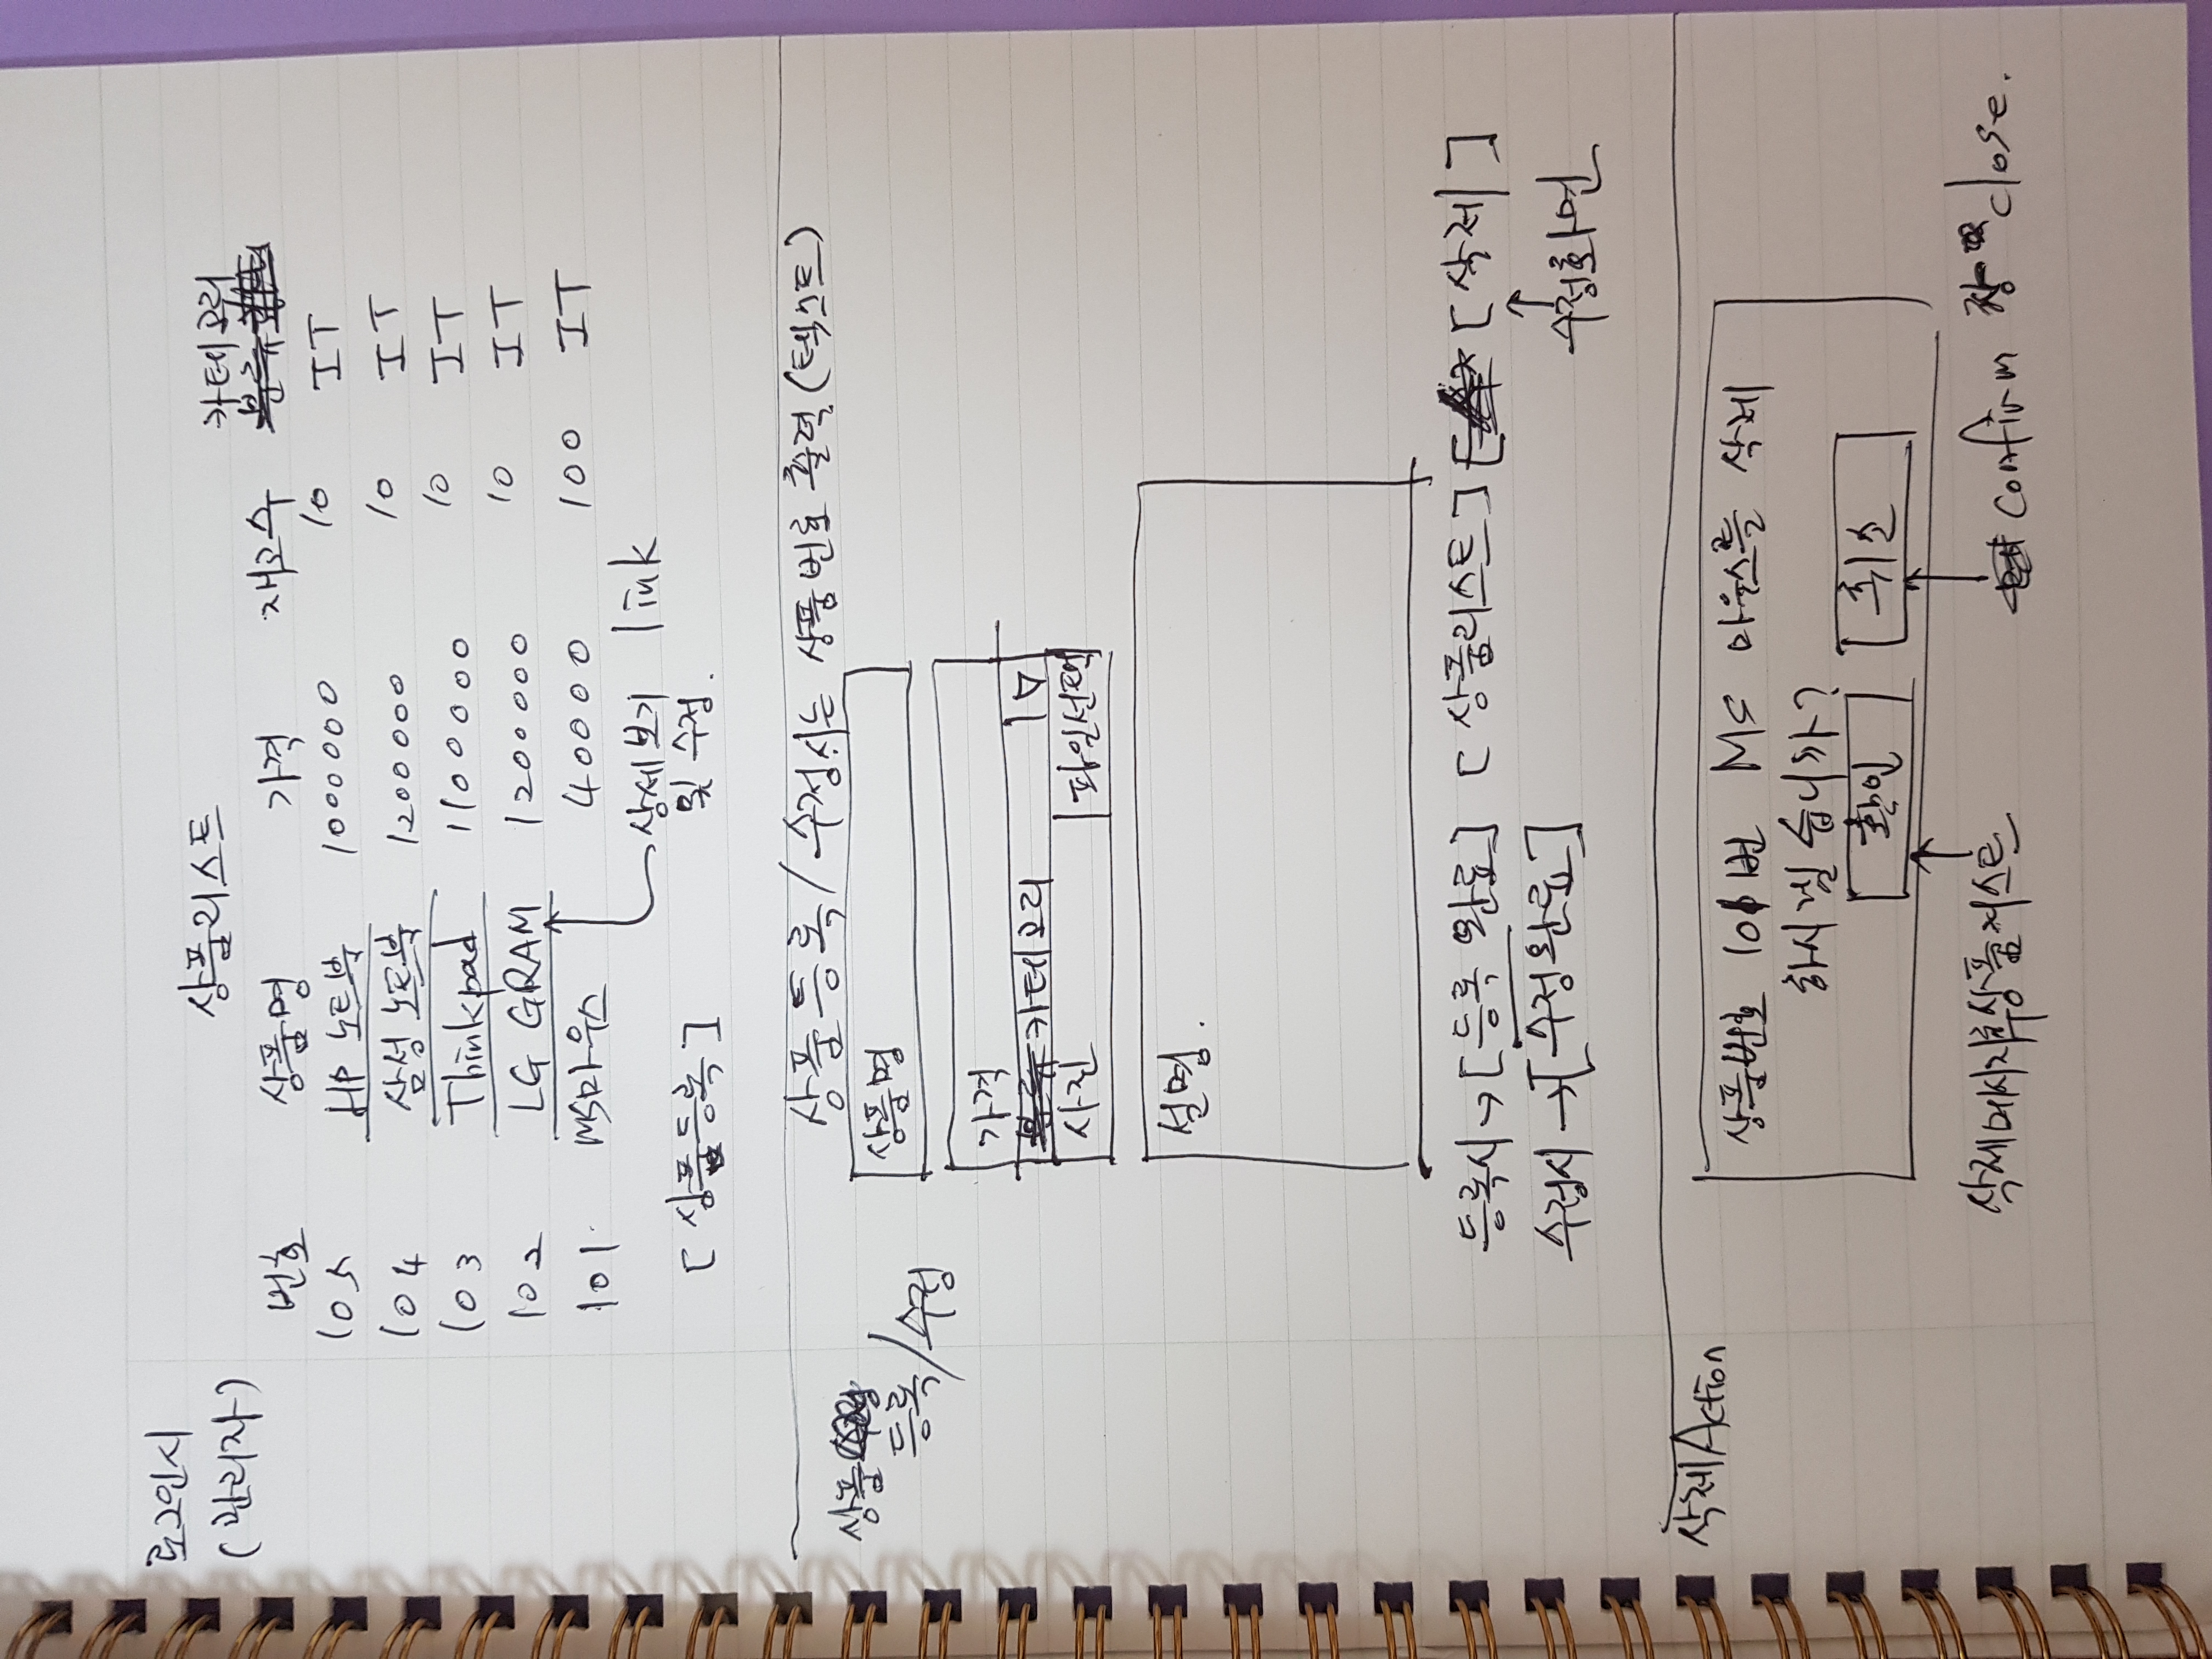 로그인시
(관리자)
상품리스트
카테고리
번호 상품명 가격 재고수 분류
105 HP 노트북 1000000 10 IT
104 삼성 노트북 1200000 10 IT
103 Thinkpad 1100000 10 IT
102 LG GRAM 1200000 10 IT
101 MS마우스 40000 100 IT
상세보기 link
및 수정.
[상품등록]
상품등록/수정시는 상품번호 출력(텍스트)
상품
등록/수정
상품명
가격
분류 카테고리
사진 파일선택
설명.
등록시→[등록 완료] [상품리스트] [삭제]
수정시→[수정완료]
수정화면
삭제Action
상품번호 101번 MS 마우스를 삭제
하시겠습니까?
확인 취소
삭제메시지후상품리스트 confirm 창 close.